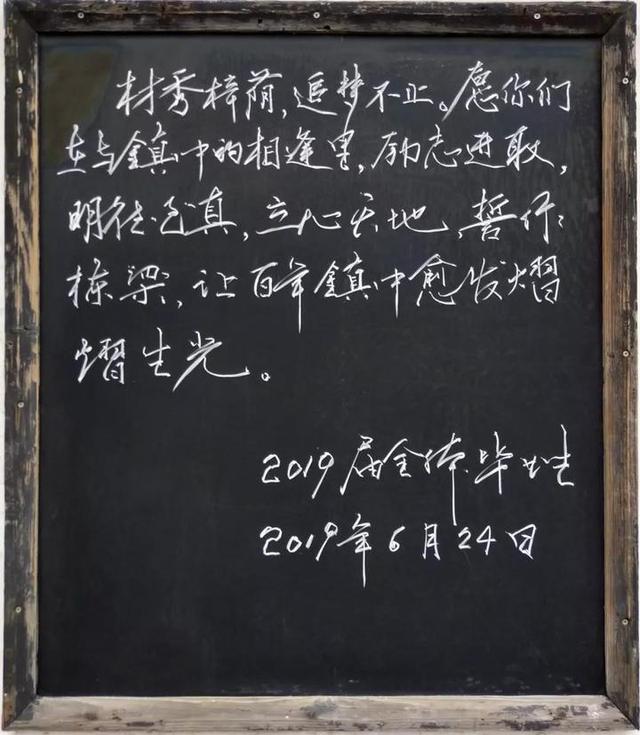 材秀梓荫，追梦不止。愿你们
在与鎮中的相逢里，励志进取，
明德求真，立心天地，誓作
栋梁，让百年鎮中愈发熠
熠生光。
2019届全体毕业生
2019年6月24日